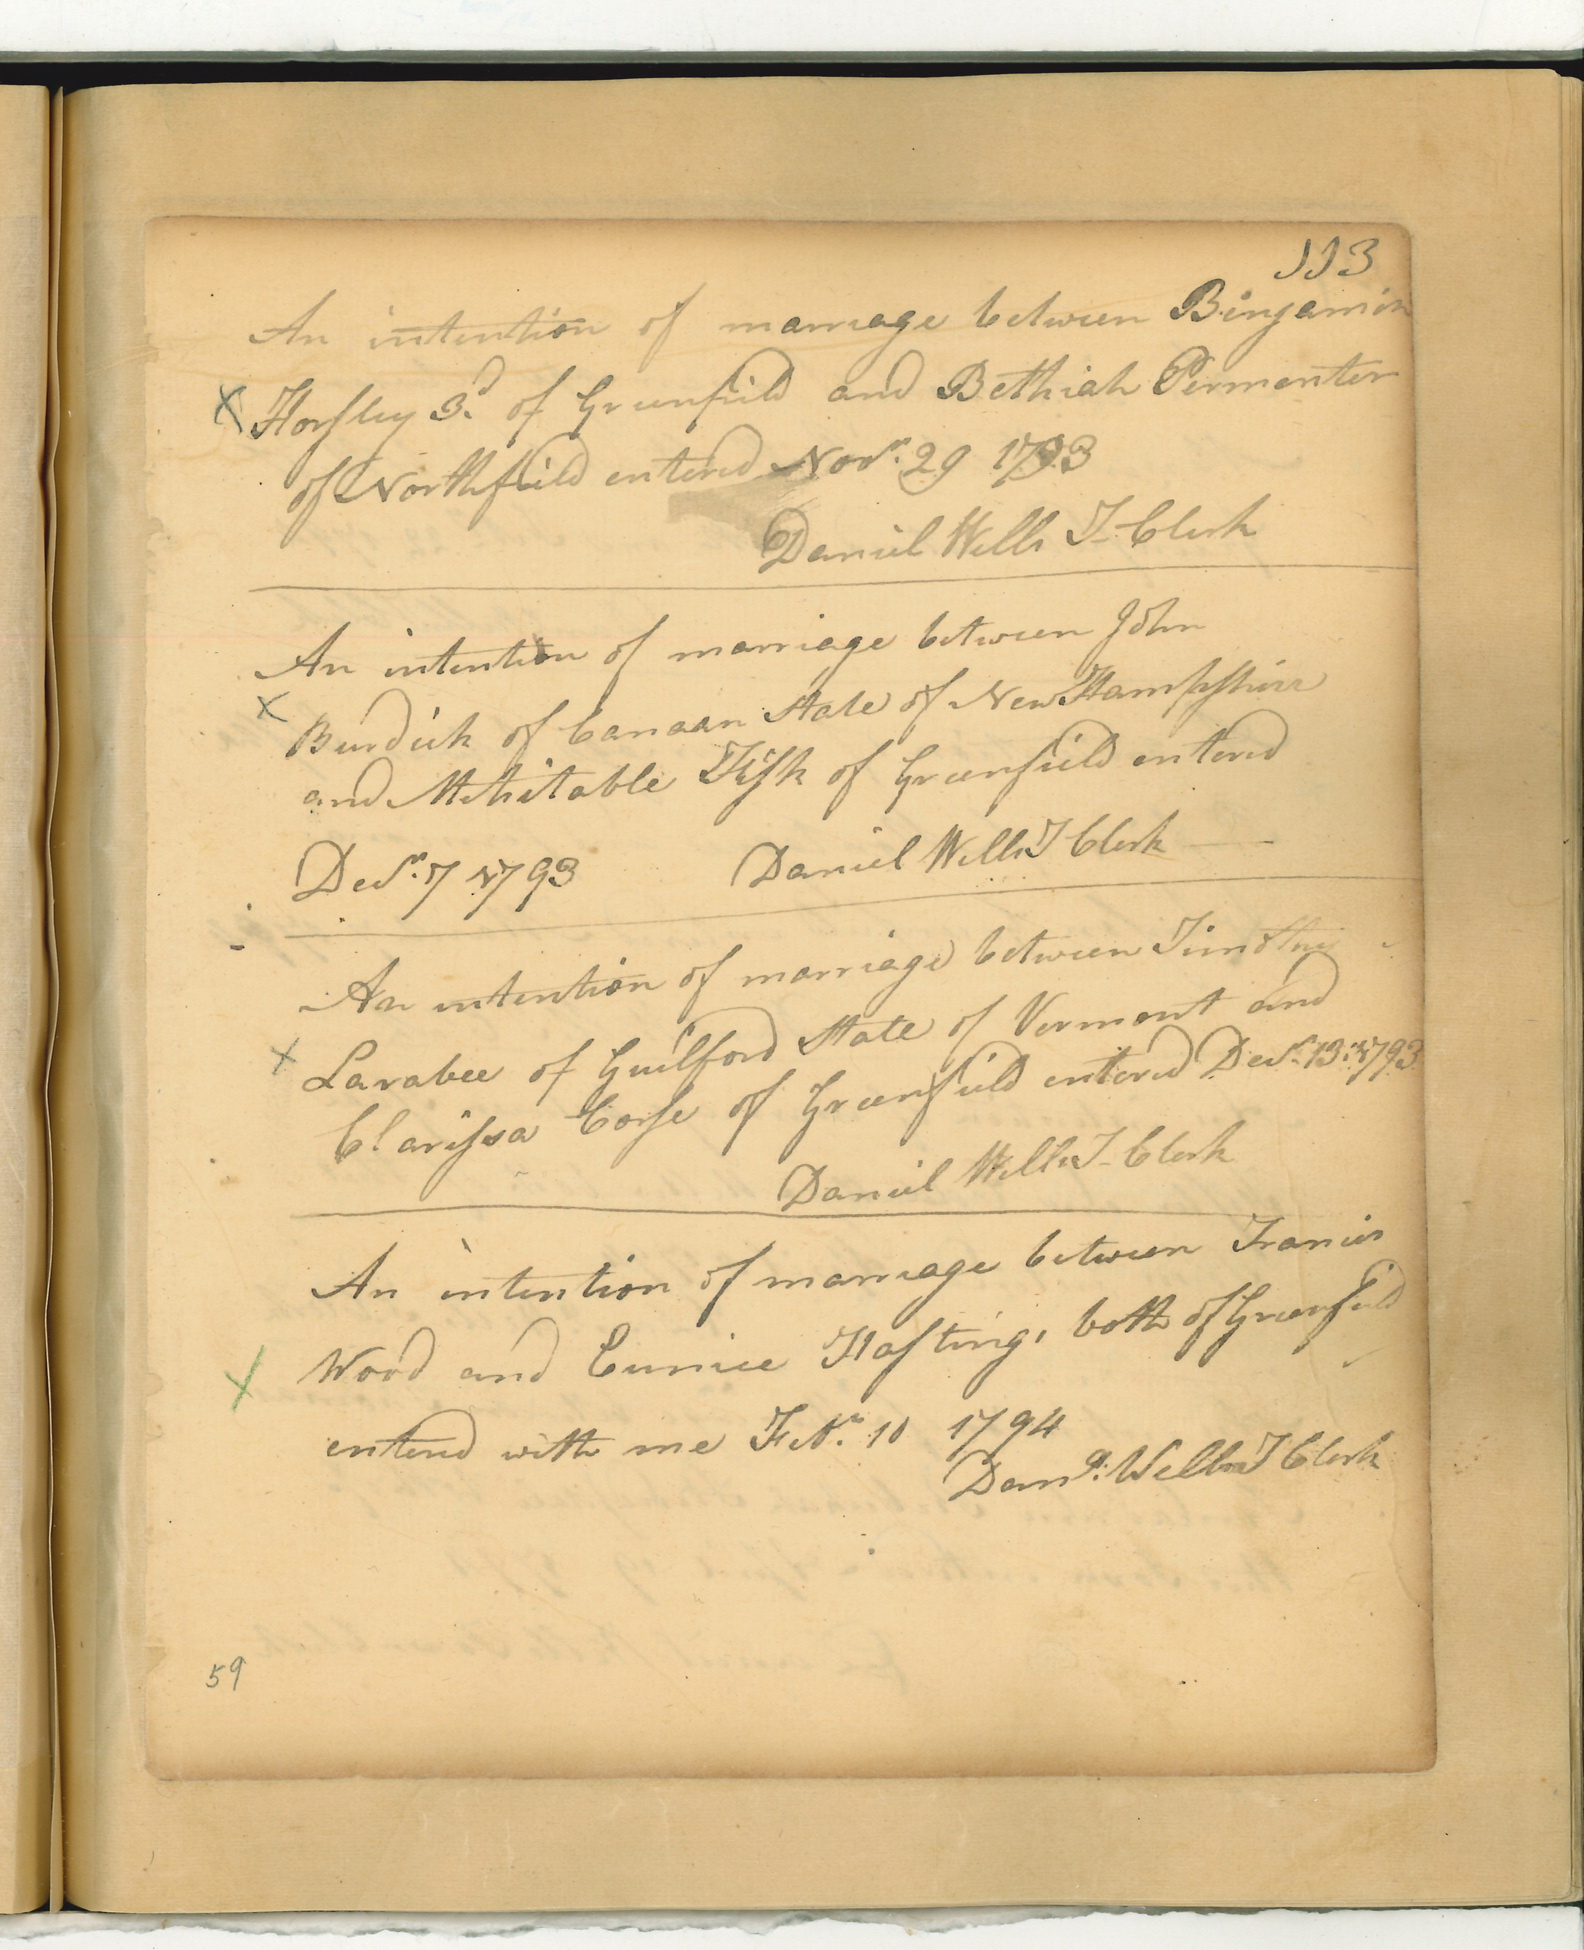 113
An intention of marriage between Binjamin
x Horsley 3d. of Greenfield and Bethiah Permenter
of Northfield entered Novr. 29 1793
Daniel Wells T- Clerk
An intention of marriage between John
x Burdick of Canaan State of New Hampshire
and Mehitable Fisk of Greenfield entered
Decr. 7 1793 Daniel Wells T Clerk
An intention of marriage between Timothy
x Larabee of Guilford State of Vermont and
Clarissa Corse of Greenfield entered Decr. 13. 1793
Daniel Wells T- Clerk
An intention of marriage between Francis
x Wood and Eunice Hastings both of Greenfield
entered with me Febr. 10 1794
Danl. Wells T Clerk
59